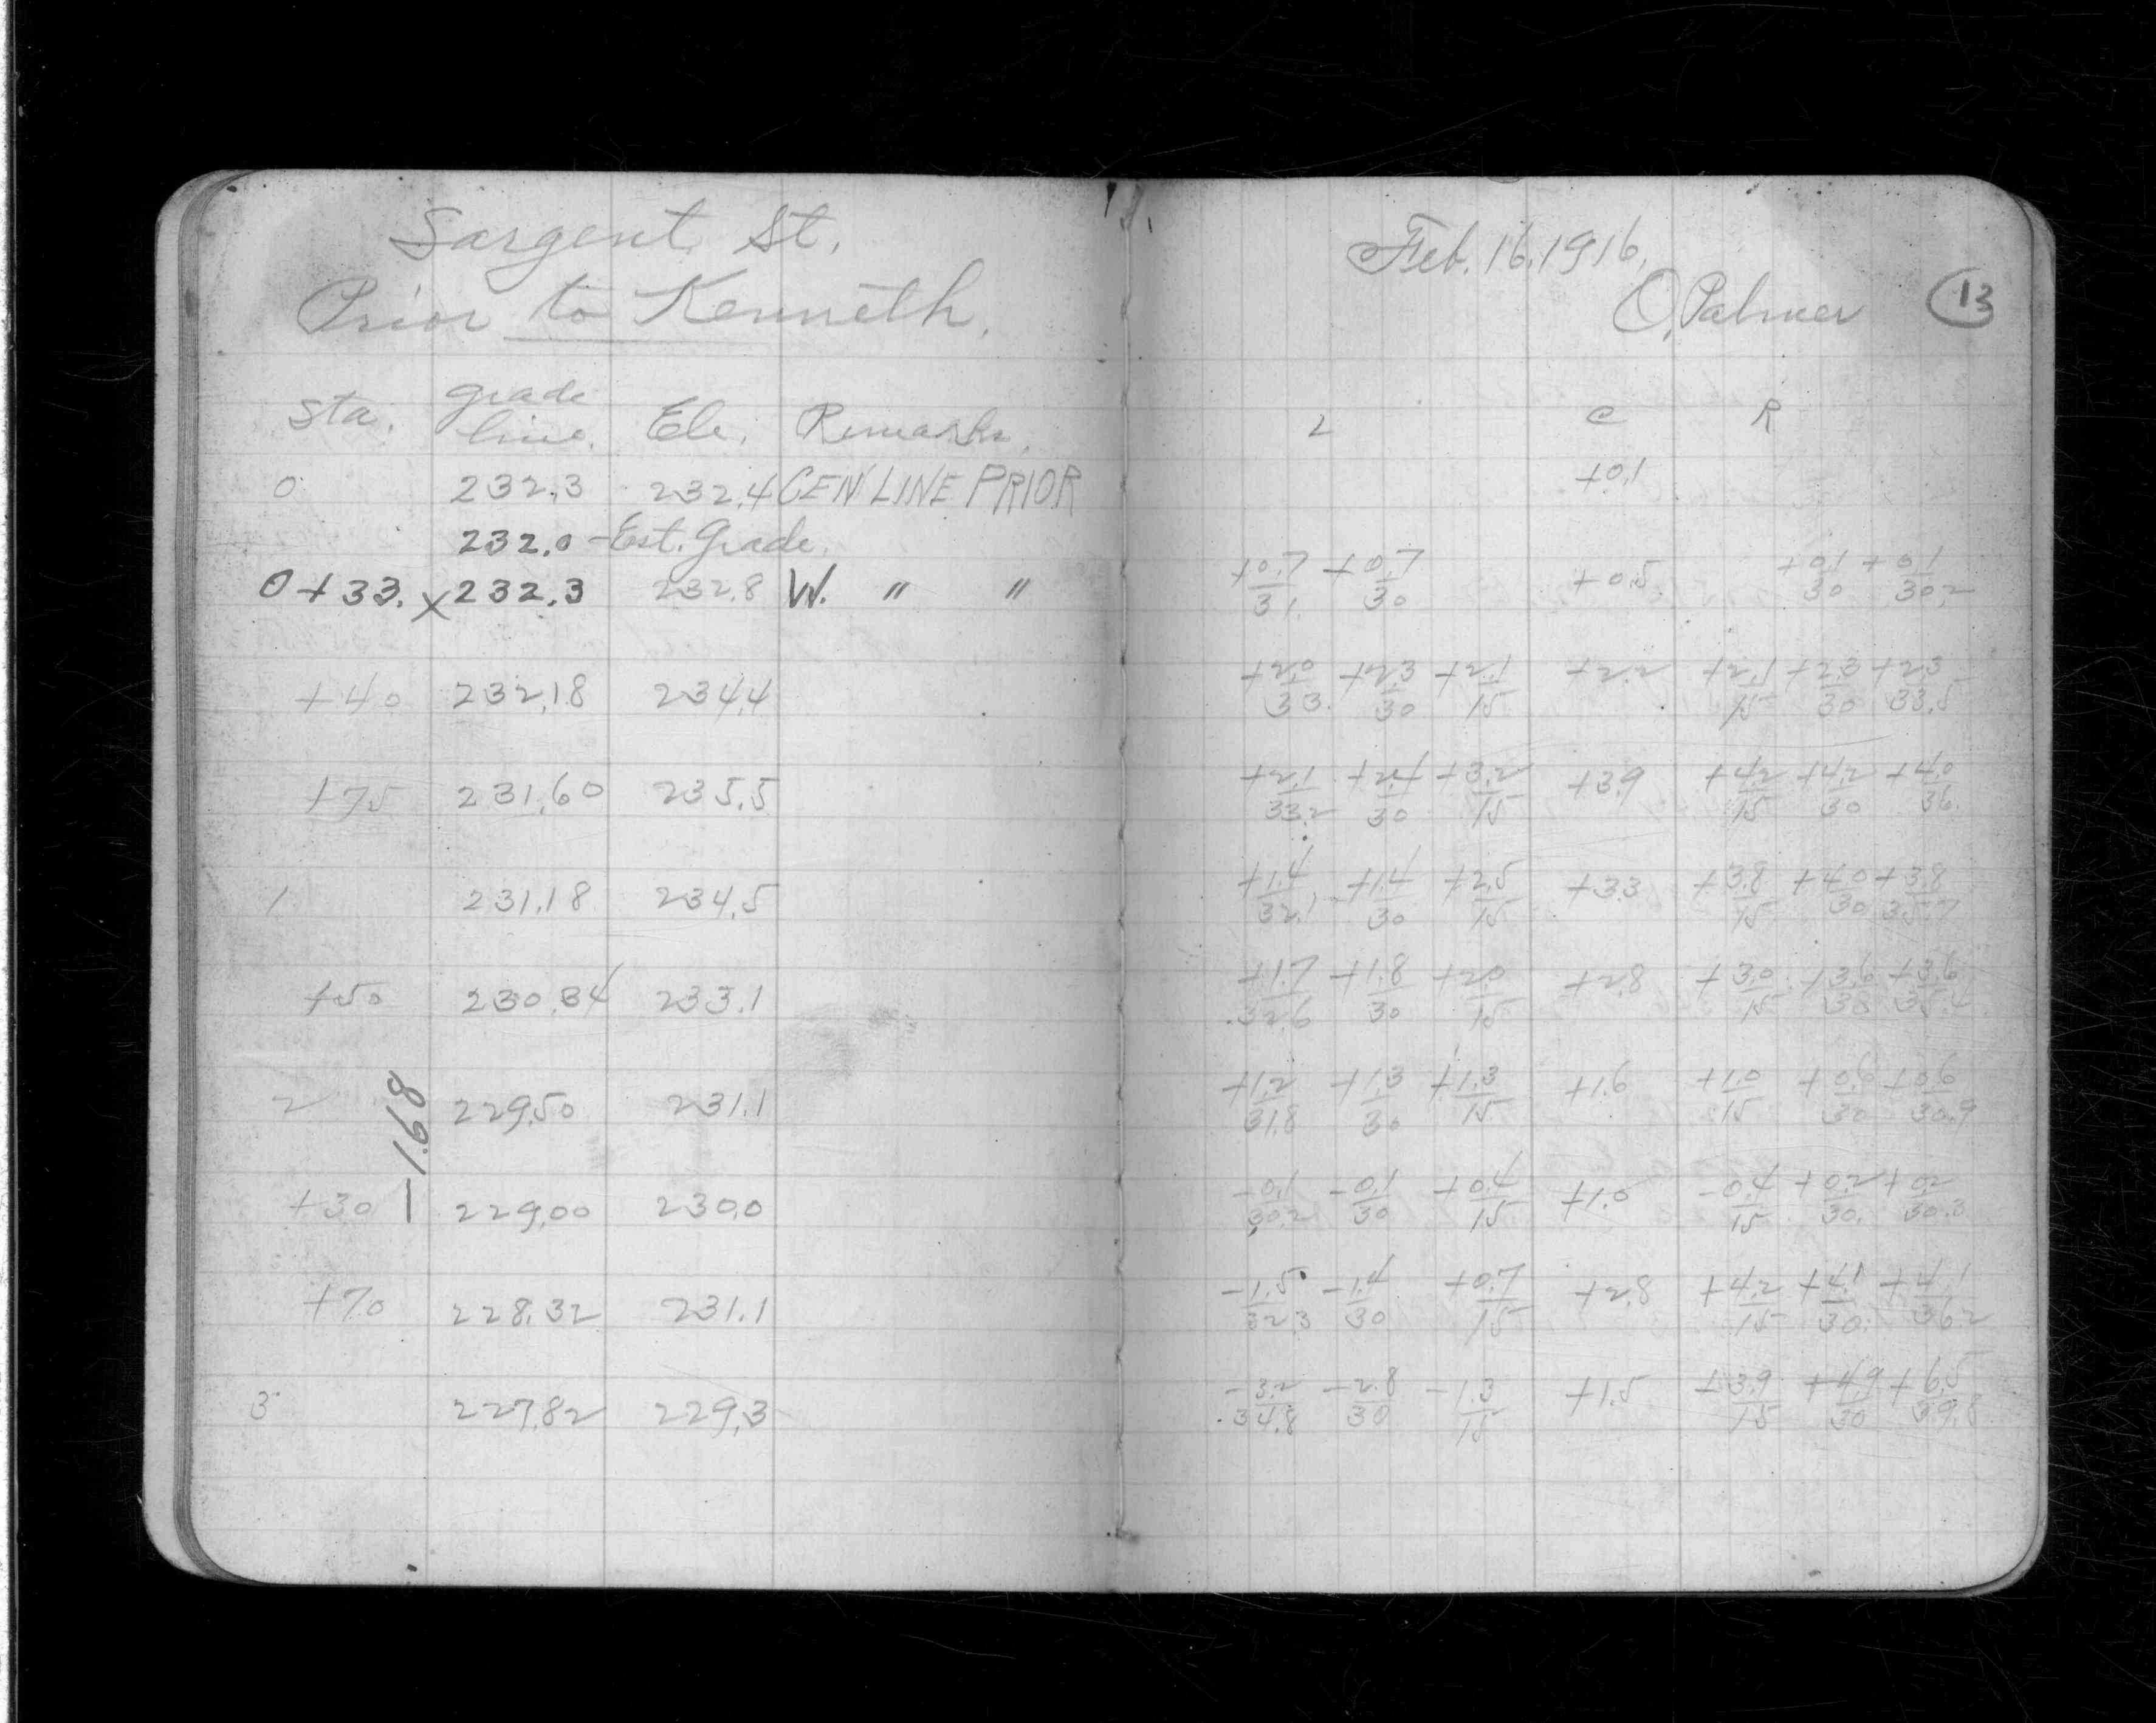 Sargent St.
Prior to Kenneth.
Sta. grade line. Ele. Remarks.
0 232.3 232.4 CEN LINE PRIOR
232.0 - Est. Grade.
0+33. x 232.3 232.8 W. " "
+40 232.18 234.4
+75 231.60 235.5
1 231.18 234.5
+50 230.34 233.1
2 229.50 231.1
-1.68
+30 229.00 230.0
+70 228.32 231.1
3 227.82 229.3
Feb. 16. 1916.
O. Palmer 13
L C R
+0.1
+0.7 +0.7 +0.5 +0.1 +0.1
31. 30 30 30.2
+2.0 +2.3 +2.1 +2.2 +2.1 +2.3 +2.3
33. 30 15 15 30 33.5
+2.1 +2.4 +3.2 +3.9 +4.2 +4.2 +4.0
33.2 30 15 15 30 36.
+1.4 +1.4 +2.5 +3.3 +3.8 +4.0 +3.8
32.1 30 15 15 30 35.7
+1.7 +1.8 +2.0 +2.8 +3.0 +3.6 +3.6
32.6 30 15 15 30 35.4
+1.2 +1.3 +1.3 +1.6 +1.0 +0.6 +0.6
31.8 30 15 15 30 30.9
-0.1 -0.1 +0.4 +1.0 -0.4 +0.2 +0.2
30.2 30 15 15 30. 30.3
-1.5 -1.4 +0.7 +2.8 +4.2 +4.1 +4.1
32.3 30 15 15 30. 36.2
-3.2 -2.8 -1.3 +1.5 +3.9 +4.9 +6.5
34.8 30 15 15 30 39.8